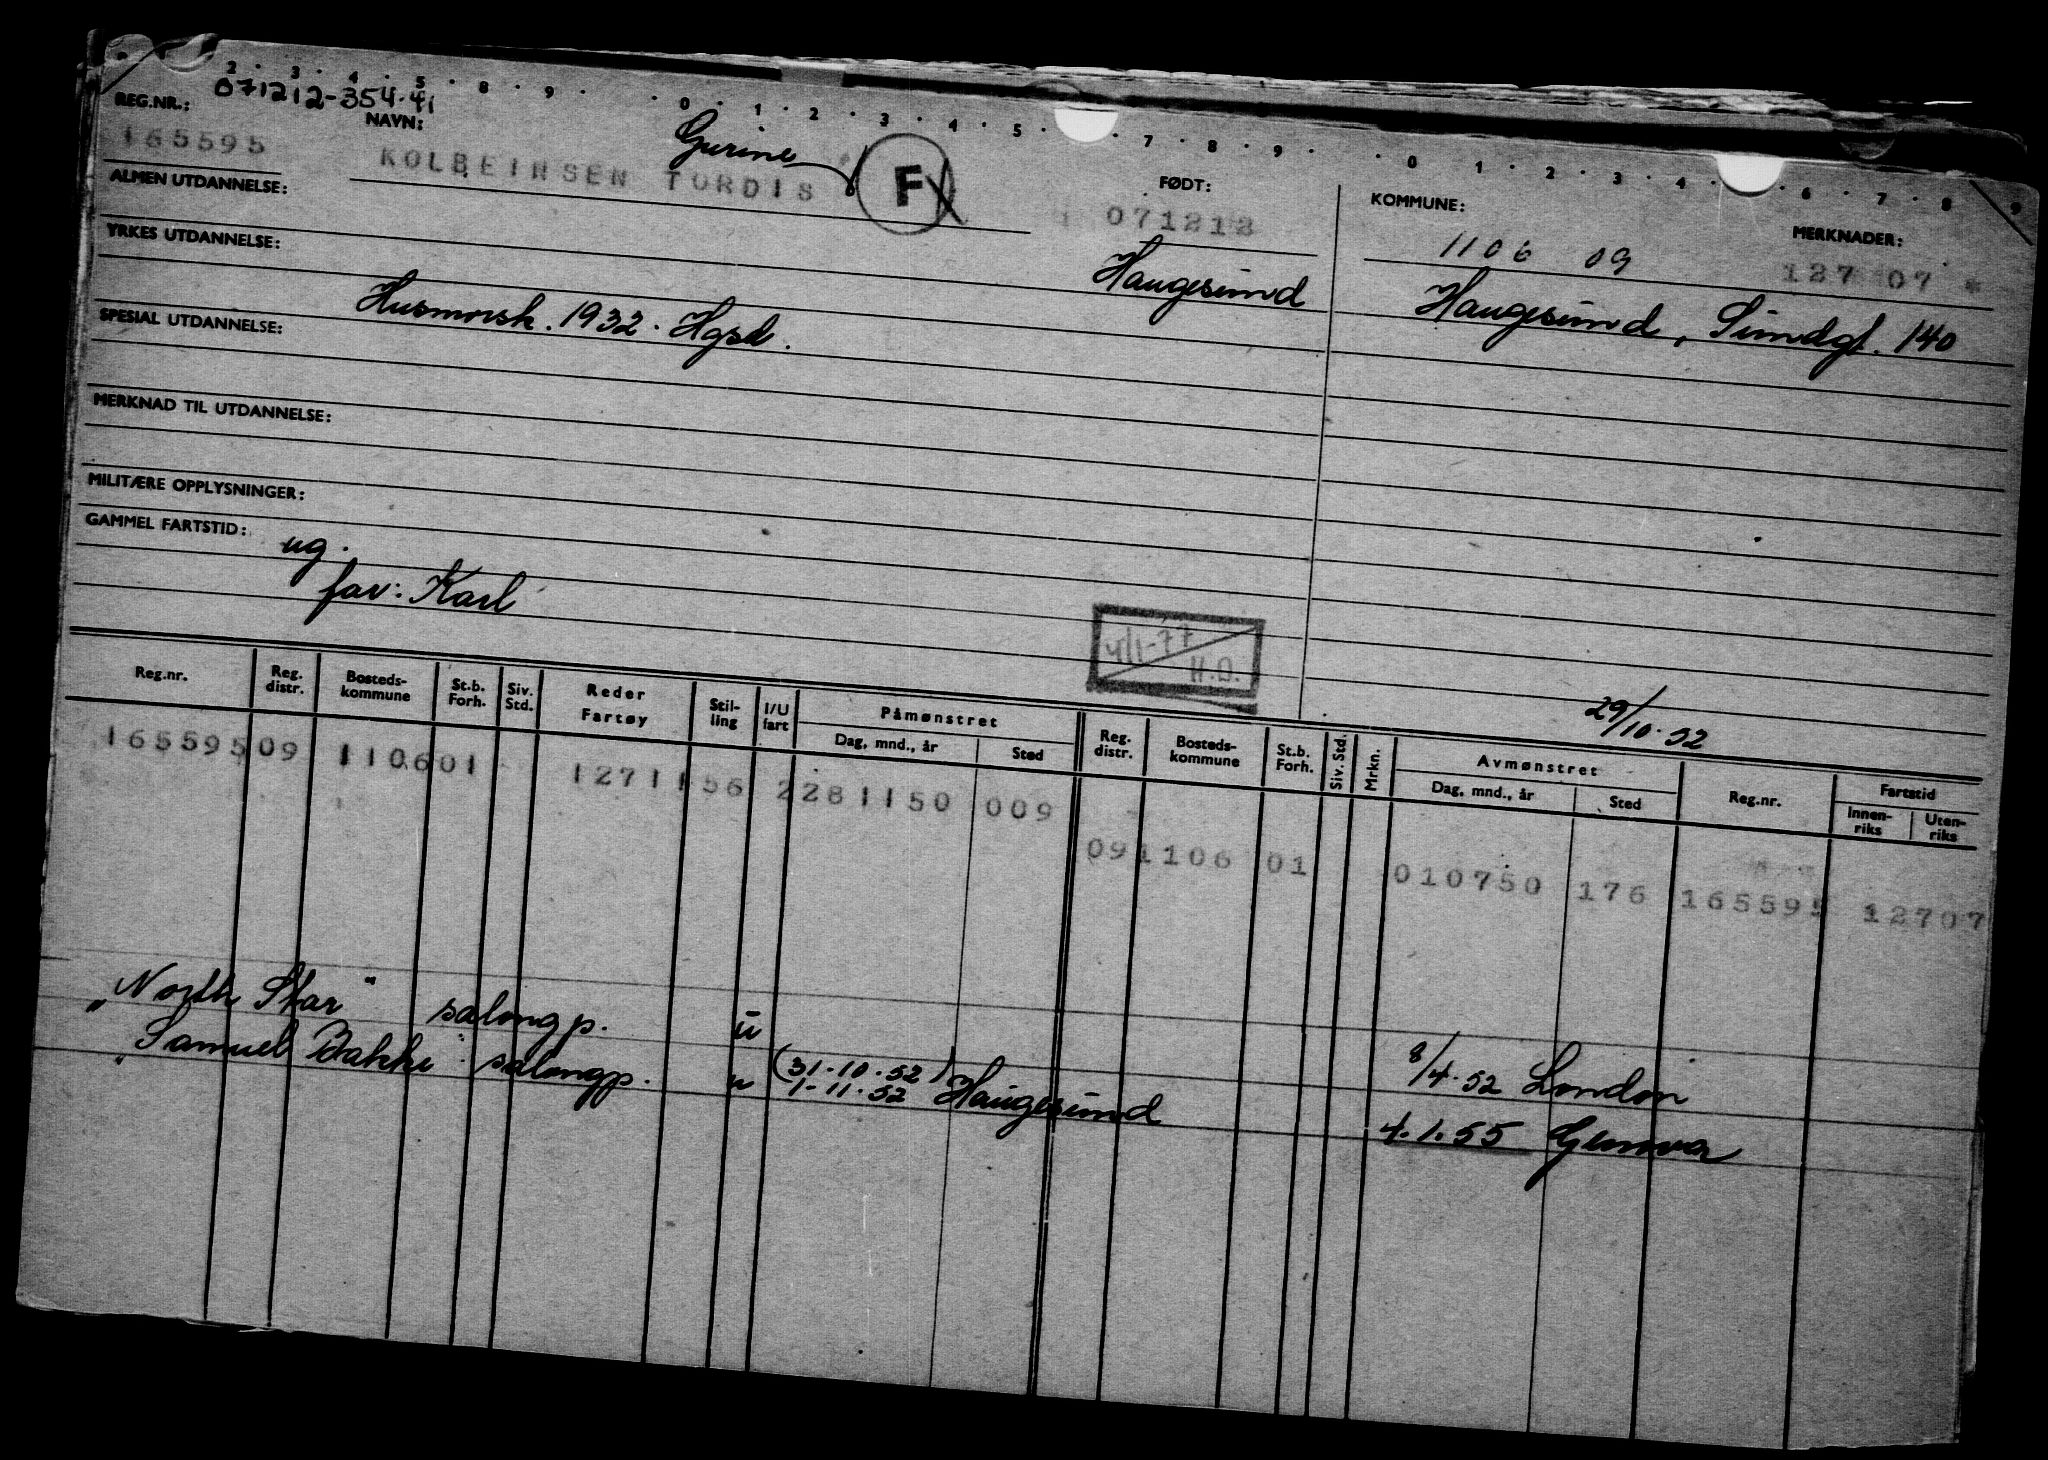 2 · 3 · 4 · 5 · 8 · 9 · · 0 · 1 · 2 · 3 · 4 · 5 · 7 · 8 · 9 · · 0 · 1 · 2 · 3 · 4 · 6 · 7 · 8 · 9
071212-354.41
REG.NR.: NAVN: Gurine
165595 KOLBEINSEN TORDIS F
FØDT: KOMMUNE: MERKNADER:
071212 1106 09 127 07 *
ALMEN UTDANNELSE:
Haugesund Haugesund, Sundgt. 140
YRKES UTDANNELSE:
Husmorsk. 1932. Hgsd.
SPESIAL UTDANNELSE:
MERKNAD TIL UTDANNELSE:
MILITÆRE OPPLYSNINGER:
GAMMEL FARTSTID:
ug.
far: Karl
4/1-77
H.O.
29/10.52
Reg.nr. Reg. distr. Bosteds-kommune St.b. Forh. Siv. Std. Reder Fartøy Stil-ling I/U fart Påmønstret Dag, mnd., år Sted Reg. distr. Bosteds-kommune St.b. Forh. Siv. Std. Mrkn. Avmønstret Dag, mnd., år Sted Reg.nr. Fartstid Innen-riks Uten-riks
165595 09 1106 01 1271156 2 281150 009
09 1106 01 010750 176 165595 12707
"North Star" salongp. u 8/4.52 London
"Samuel Bakke" salongp. u (31.10.52) 1-11.52 Haugesund 4.1.55 Genova